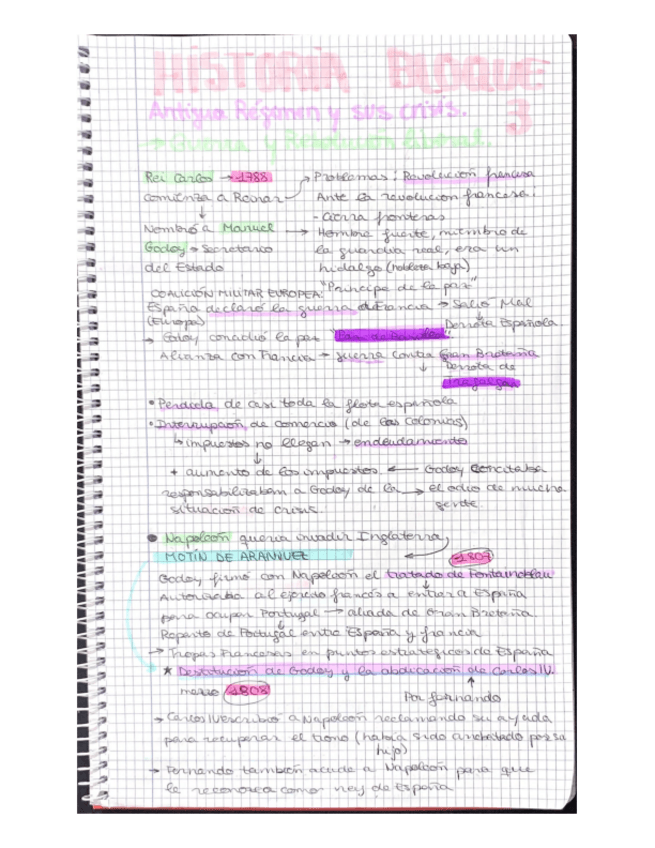 HISTORIA BLOQUE 3
Antiguo Régimen y sus crisis.
→ Guerra y Revolución liberal.
Rei Carlos → 1788 → Problemas: Revolución francesa
comienza a Reinar Ante la revolución francesa:
↓ - cierra fronteras
Nombró a Manuel → Hombre fuerte, miembro de
Godoy → Secretario la guardia real, era un
del Estado hidalgo (nobleza baja)
"Príncipe de la paz"
COALICIÓN MILITAR EUROPEA:
España declaró la guerra a Francia → Salió Mal
(Europa) ↓
Derrota Española
→ Godoy concedió la paz "Paz de Basilea".
Alianza con Francia → guerra contra Gran Bretaña
↓ Derrota de
Trafalgar
• Perdida de casi toda la flota española
• Interrupción de comercio (de las colonias)
↳ impuestos no llegan → endeudamiento
↓
+ aumento de los impuestos ← Godoy concitaba
responsabilizaban a Godoy de la → el odio de mucha
situación de crisis. gente.
• Napoleón quería invadir Inglaterra
MOTÍN DE ARANJUEZ ← 1807
Godoy firmó con Napoleón el tratado de Fontainebleau
Autorizaba al ejército francés a entrar a España
para ocupar Portugal → aliada de Gran Bretaña
↓
Reparto de Portugal entre España y francia
→ Tropas Francesas en puntos estratégicos de España
★ Destitución de Godoy y la abdicación de Carlos IV.
marzo 1808 ↑
Por fernando
→ Carlos IV escribió a Napoleón reclamando su ayuda
para recuperar el trono (había sido arrebatado por su
hijo)
→ Fernando también acude a Napoleón para que
le reconozca como rey de España